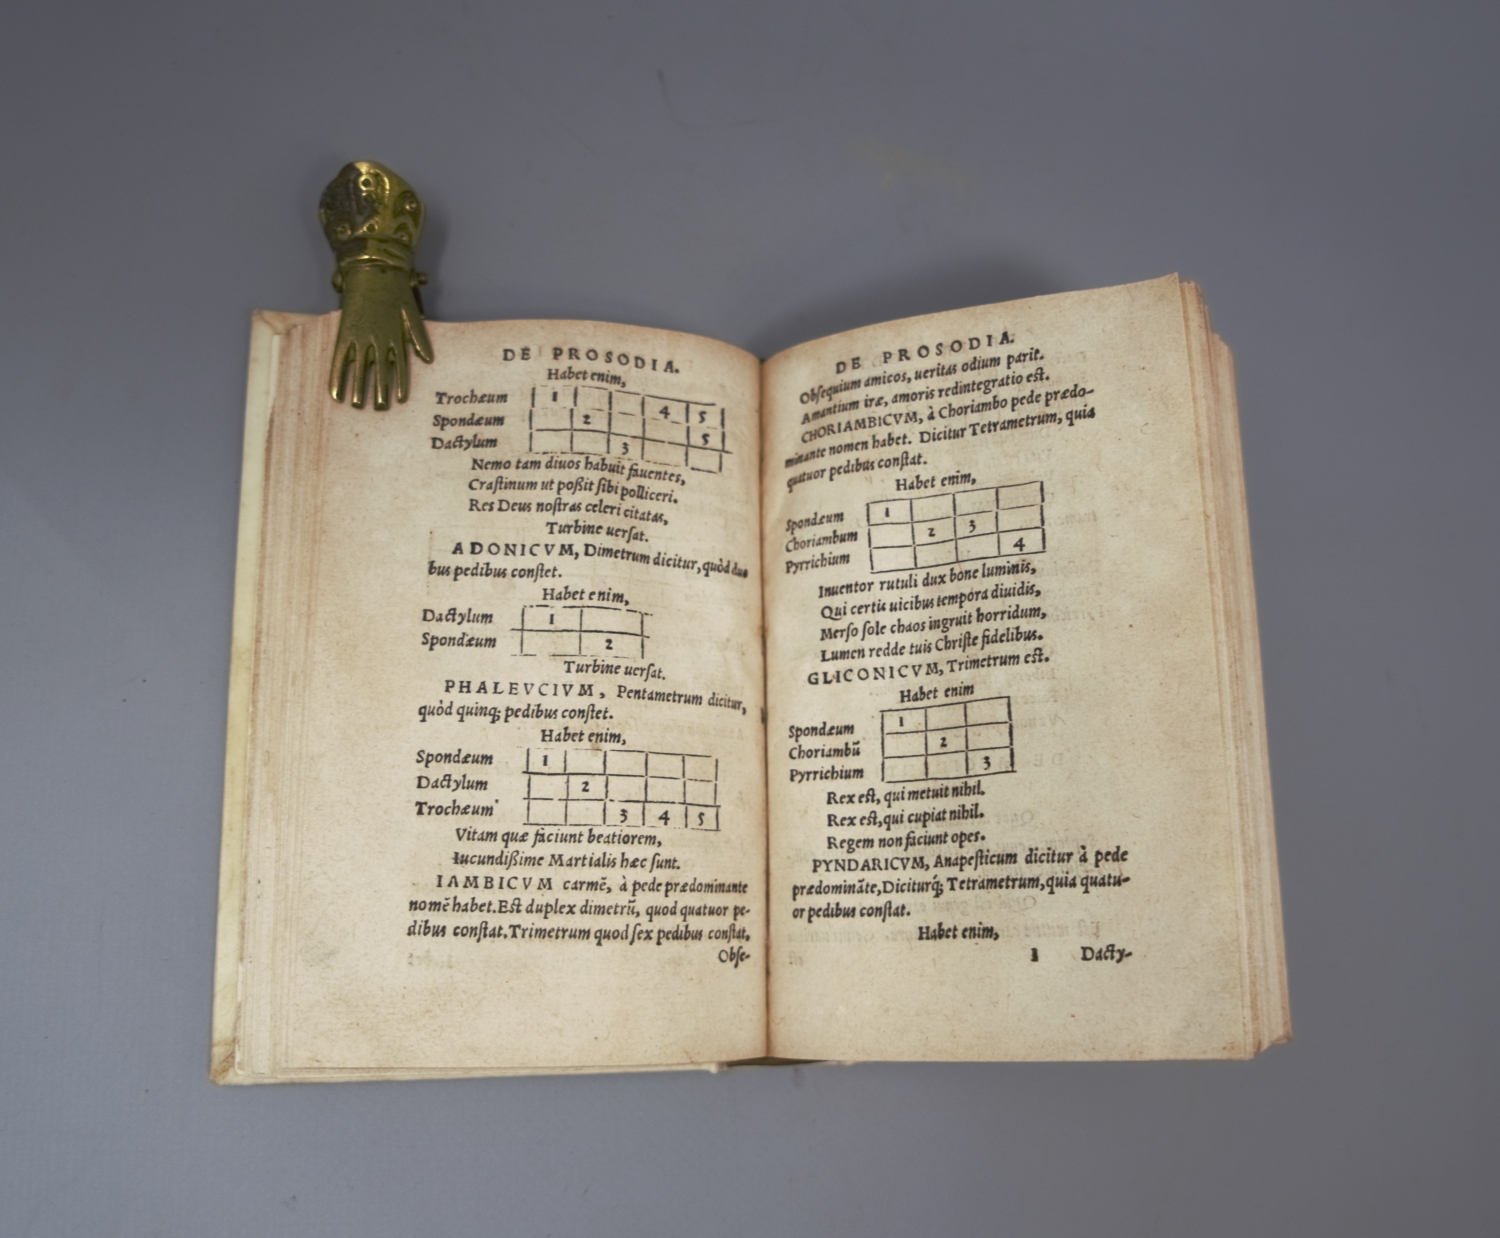 DE PROSODIA.
Habet enim,
Trochæum 1 4 5
Spondæum 2 5
Dactylum 3
Nemo tam diuos habuit fauentes,
Crastinum ut poßit sibi polliceri.
Res Deus nostras celeri citatas,
Turbine uersat.
ADONICVM, Dimetrum dicitur, quòd duo
bus pedibus constet.
Habet enim,
Dactylum 1
Spondæum 2
Turbine uersat.
PHALEVCIVM, Pentametrum dicitur,
quòd quinq; pedibus constet.
Habet enim,
Spondæum 1
Dactylum 2
Trochæum 3 4 5
Vitam quæ faciunt beatiorem,
Iucundißime Martialis hæc sunt.
IAMBICVM carmē, à pede prædominante
nomē habet. Est duplex dimetrū, quod quatuor pe-
dibus constat. Trimetrum quod sex pedibus constat,
Obse-
DE PROSODIA.
Obsequium amicos, ueritas odium parit.
Amantium iræ, amoris redintegratio est.
CHORIAMBICVM, à Choriambo pede prædo-
minante nomen habet. Dicitur Tetrametrum, quia
quatuor pedibus constat.
Habet enim,
Spondæum 1
Choriambum 2 3
Pyrrichium 4
Inuentor rutuli dux bone luminis,
Qui certis uicibus tempora diuidis,
Merso sole chaos ingruit horridum,
Lumen redde tuis Christe fidelibus.
GLICONICVM, Trimetrum est.
Habet enim
Spondæum 1
Choriambū 2
Pyrrichium 3
Rex est, qui metuit nihil.
Rex est, qui cupiat nihil.
Regem non faciunt opes.
PYNDARICVM, Anapesticum dicitur à pede
prædomināte, Diciturq́; Tetrametrum, quia quatu-
or pedibus constat.
Habet enim,
1 Dacty-